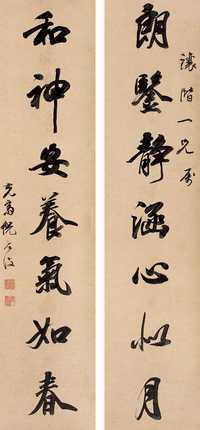 讓階一兄屬
朗鑒靜涵心似月
和神安養氣如春